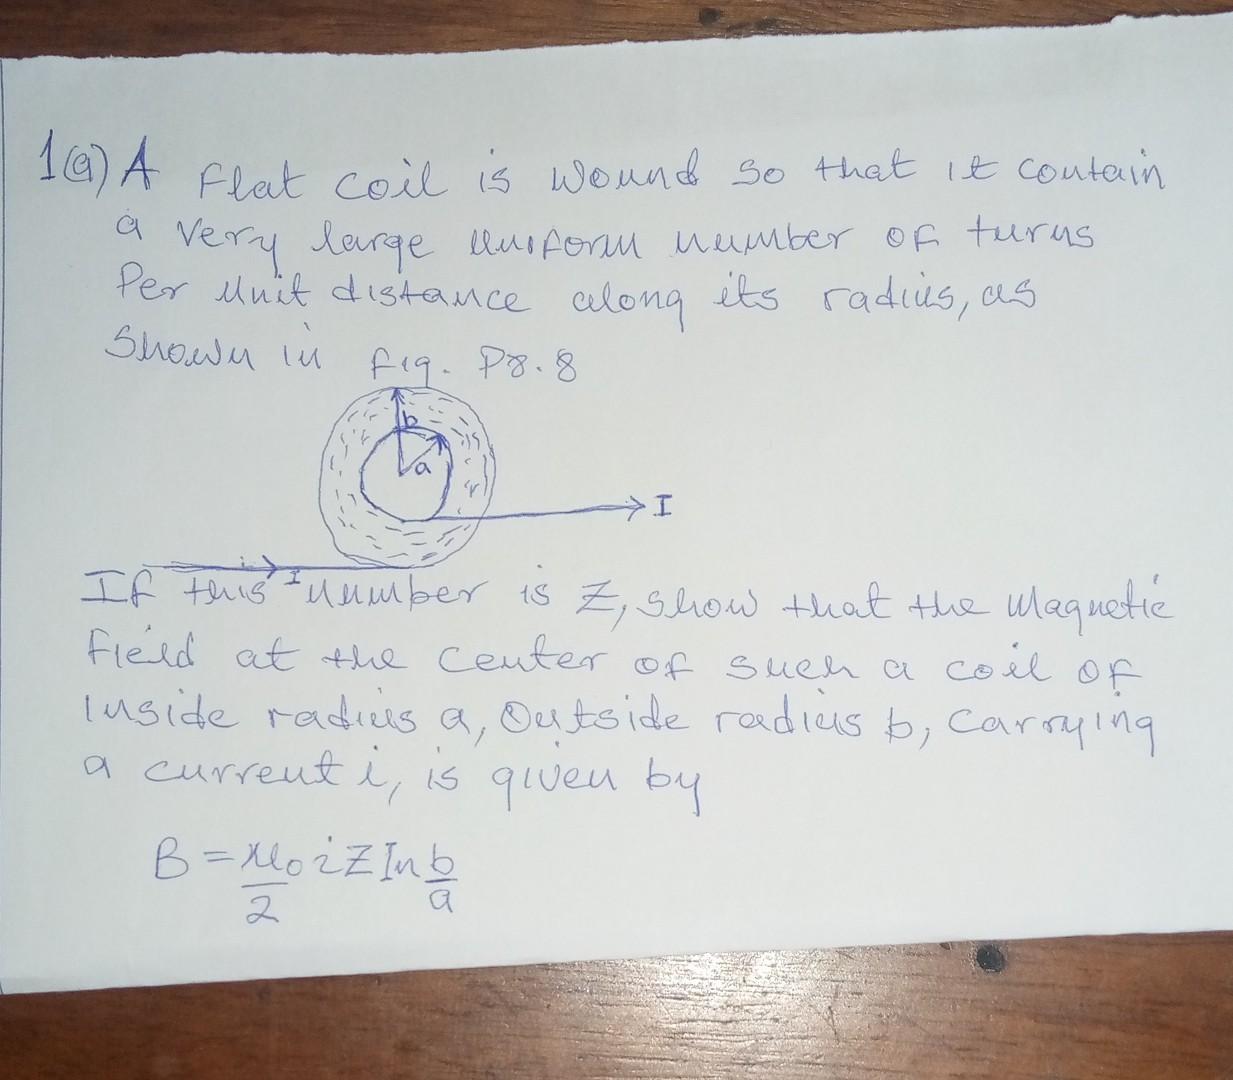 1(a) A flat coil is wound so that it contain
a very large uniform number of turns
Per Unit distance along its radius, as
Shown in fig. P8.8
b
a
I
I
If this number is Z, show that the Magnetic
field at the center of such a coil of
Inside radius a, Outside radius b, carrying
a current i, is given by
B = μ₀/2 iZ In b/a